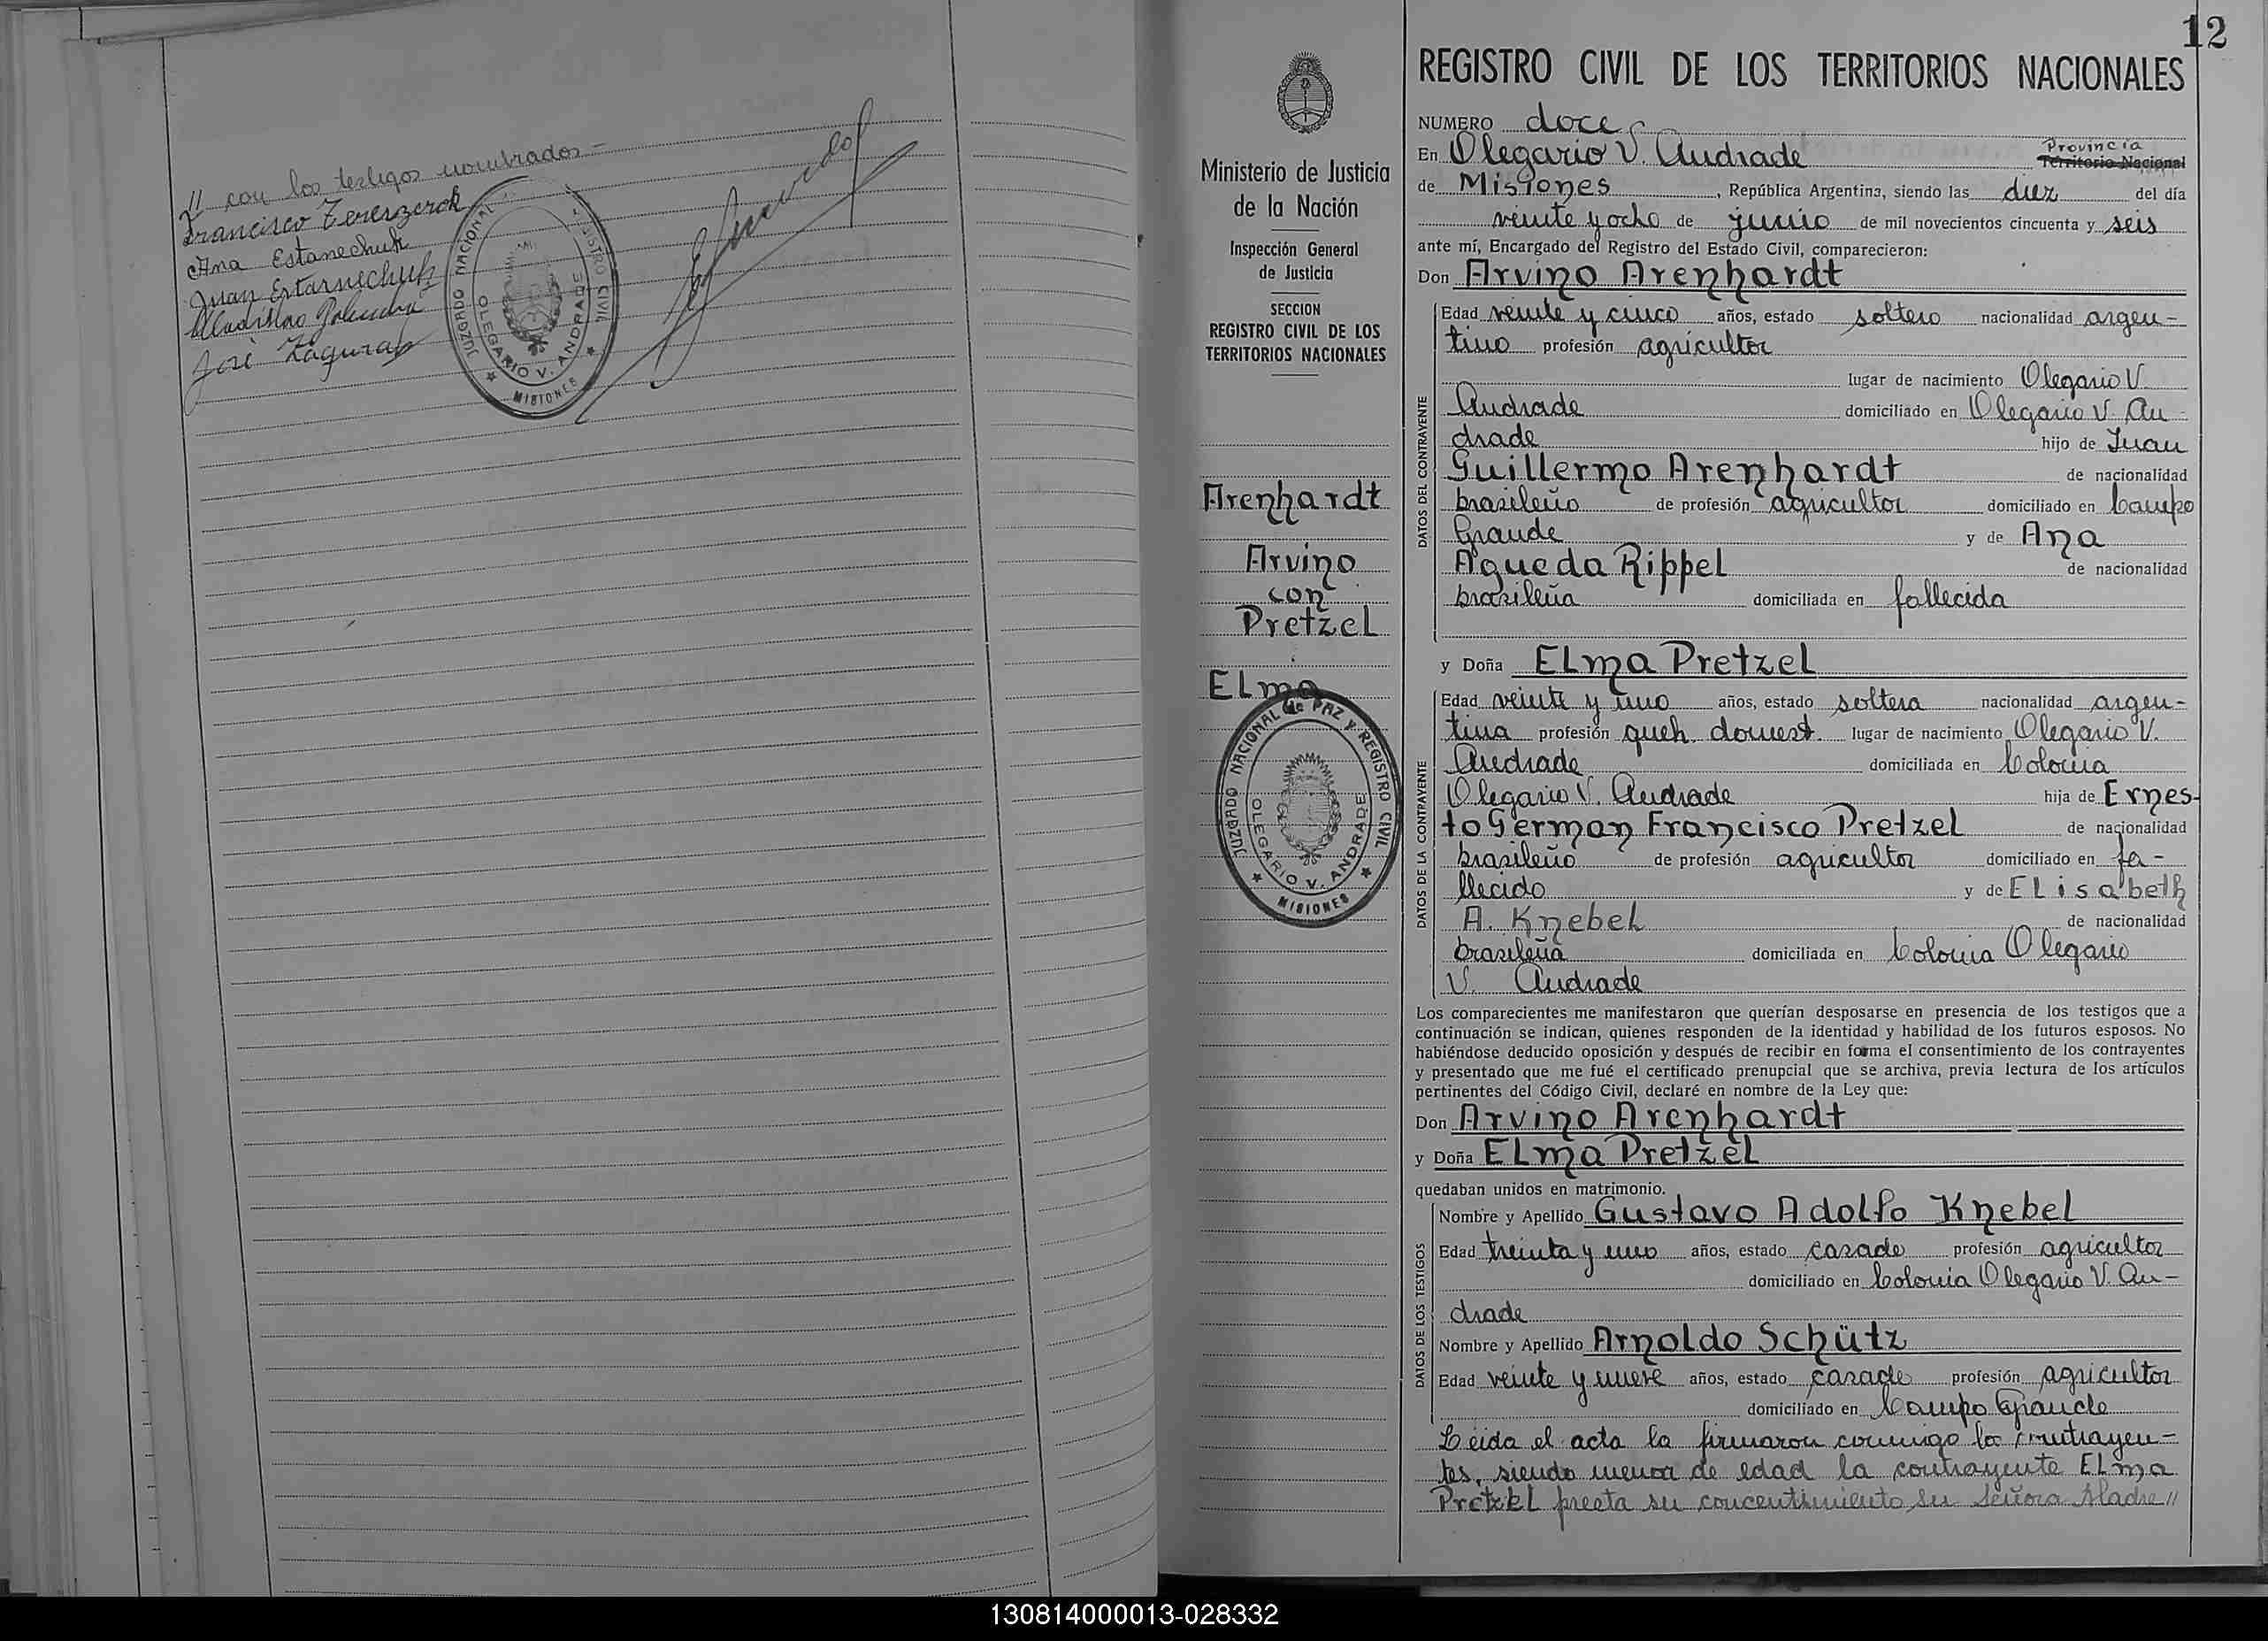 // con los testigos nombrados -
Francisco
Ana Estanechuk
Juan Estarnechuk
José Zagura
JUZGADO NACIONAL
REGISTRO CIVIL
OLEGARIO V. ANDRADE
MISIONES
12
Ministerio de Justicia
de la Nación
Inspección General
de Justicia
SECCION
REGISTRO CIVIL DE LOS
TERRITORIOS NACIONALES
Arenhardt
Arvino
con
Pretzel
Elma
JUZGADO NACIONAL de PAZ Y REGISTRO CIVIL
OLEGARIO V. ANDRADE
MISIONES
REGISTRO CIVIL DE LOS TERRITORIOS NACIONALES
NUMERO doce
Provincia
En Olegario V. Andrade Territorio Nacional
de Misiones, República Argentina, siendo las diez del día
veinte y ocho de junio de mil novecientos cincuenta y seis
ante mí, Encargado del Registro del Estado Civil, comparecieron:
Don Arvino Arenhardt
DATOS DEL CONTRAYENTE
Edad veinte y cinco años, estado soltero nacionalidad argen-
tino profesión agricultor
lugar de nacimiento Olegario V.
Andrade domiciliado en Olegario V. An-
drade hijo de Juan
Guillermo Arenhardt de nacionalidad
brasileño de profesión agricultor domiciliado en Campo
Grande y de Ana
Agueda Rippel de nacionalidad
brasileña domiciliada en fallecida
y Doña Elma Pretzel
DATOS DE LA CONTRAYENTE
Edad veinte y uno años, estado soltera nacionalidad argen-
tina profesión queh. domest. lugar de nacimiento Olegario V.
Andrade domiciliada en Colonia
Olegario V. Andrade hija de Ernes-
to German Francisco Pretzel de nacionalidad
brasileño de profesión agricultor domiciliado en fa-
llecido y de Elisabeth
A. Knebel de nacionalidad
brasileña domiciliada en Colonia Olegario
V. Andrade
Los comparecientes me manifestaron que querían desposarse en presencia de los testigos que a
continuación se indican, quienes responden de la identidad y habilidad de los futuros esposos. No
habiéndose deducido oposición y después de recibir en forma el consentimiento de los contrayentes
y presentado que me fué el certificado prenupcial que se archiva, previa lectura de los artículos
pertinentes del Código Civil, declaré en nombre de la Ley que:
Don Arvino Arenhardt
y Doña Elma Pretzel
quedaban unidos en matrimonio.
DATOS DE LOS TESTIGOS
Nombre y Apellido Gustavo Adolfo Knebel
Edad treinta y uno años, estado casado profesión agricultor
domiciliado en Colonia Olegario V. An-
drade
Nombre y Apellido Arnoldo Schütz
Edad veinte y nueve años, estado casado profesión agricultor
domiciliado en Campo Grande
Leida el acta la firmaron conmigo los contrayen-
tes, siendo menor de edad la contrayente Elma
Pretzel presta su concentimiento su Señora Madre //
130814000013-028332